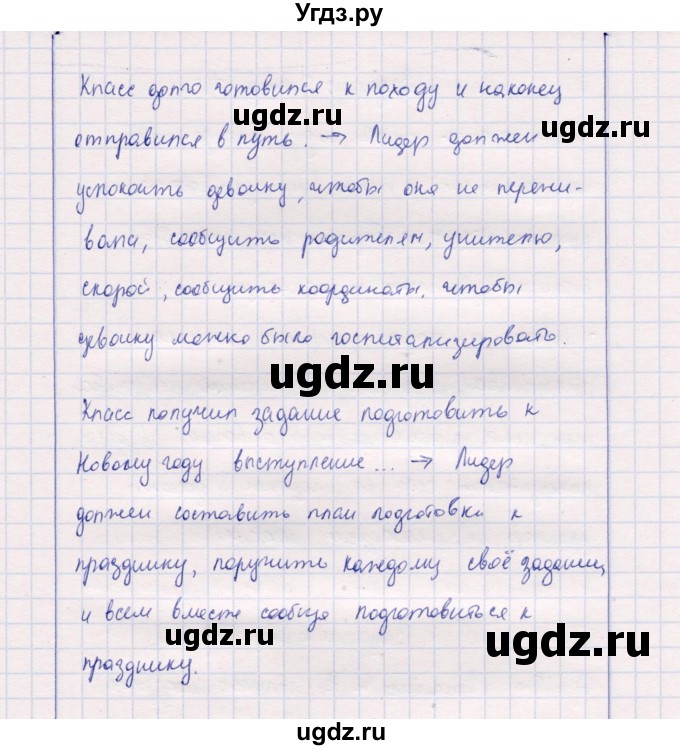 Угдз.ру
Класс долго готовился к походу и наконец
отправился в путь. → Лидер должен
успокоить девочку, чтобы она не пережи-
вала, сообщить родителям, учителю,
скорой, сообщить координаты, чтобы
девочку можно было госпитализировать.
Класс получил задание подготовить к
Новому году выступление... → Лидер
должен составить план подготовки к
празднику, поручить каждому своё задание,
и всем вместе сообща подготовиться к
празднику.
ugdz.ru
ugdz.ru
ugdz.ru
ugdz.ru
ugdz.ru
ugdz.ru
ugdz.ru